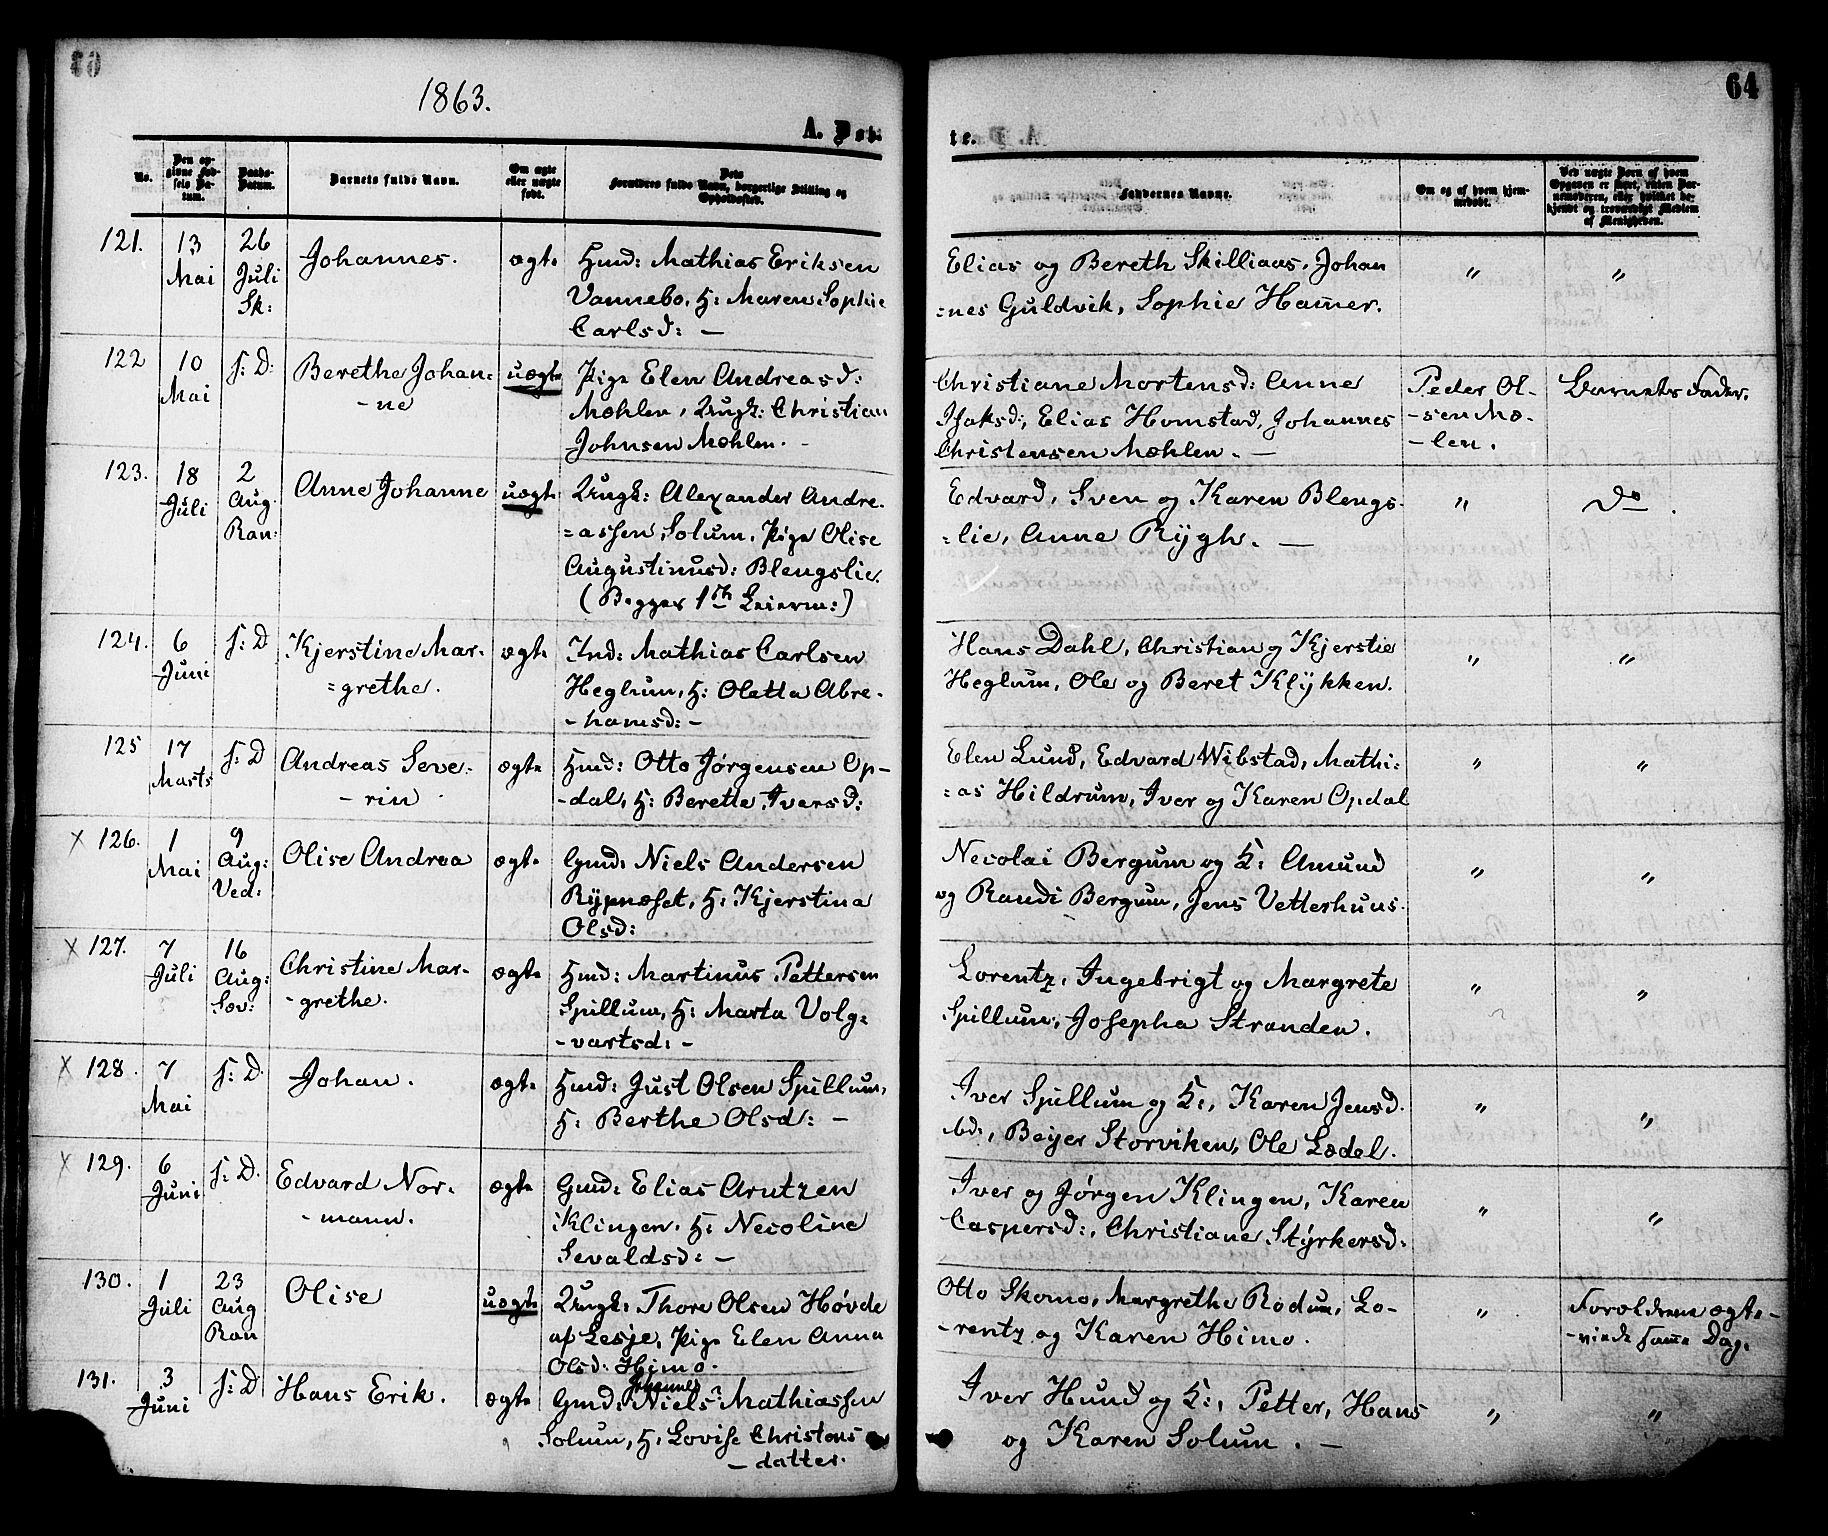 1863.
64
A. Døbte.
No.
Den opgivne Fødsels Datum.
Daabs-Datum.
Barnets fulde Navn.
Om ægte eller uægte født.
Dets Forældres fulde Navn, borgerlige Stilling og Opholdssted.
Faddernes Navne.
Om og af hvem hjemmedøbt.
121. 13 Mai 26 Juli Sk: Johannes. ægte Hmd: Mathias Eriksen
Vannebo, H: Maren Sophie
Carlsd: —
Elias og Bereth Skilliaas, Johan
=nes Guldvik, Sophie Hamer. " "
122 10 Mai s: D: Berethe Johan=
-ne uægte Pige Elen Andreasd:
Mæhlen, Ungk: Christian
Johnsen Mæhlen. -
Christiane Mortensd: Anne
Isaksd:, Elias Homstad, Johannes
Christensen Mæhlen. —
Peder Ol-
-sen Mæ-
-len.
Barnets Fader.
123. 18 Juli 2 Aug Ran: Anne Johanne uægte Ungk: Alexander Andre=
=assen Solum, Pige Olise
Augustinusd: Blengslie.
(Begges 1ste Leierm:)
Edvard, Sven og Karen Blengs-
=lie, Anne Rygh. — " Do.
124. 6 Juni s: D Kjerstine Mar-
=grethe. ægte Ind: Mathias Carlsen
Heglum, H: Oletta Abra-
-hamsd: -
Hans Dahl, Christian og Kjerstie
Heglum, Ole og Beret Klykken. " "
125 17 Marts s: D Andreas Seve-
-rin ægte Hmd: Otto Jørgensen Op-
-dal, H: Berette Iversd:
Elen Lund, Edvard Wibstad, Mathi=
=as Hildrum, Iver og Karen Opdal " "
x 126. 1 Mai 9 Aug: Ved: Olise Andrea ægte Gmd: Niels Andersen
Rypnæset, H: Kjerstina
Olsd:
Necolai Bergum og K: Amund
og Randi Bergum, Jens Vetterhuus. " "
x 127. 7 Juli 16 Aug: Sæv: Christine Mar-
-grethe. ægte Hmd: Martinus Pettersen
Spillum, H: Marta Volg-
-vartsd: -
Lorentz, Ingebrigt og Margrete
Spillum, Josepha Stranden. " "
x 128. 7 Mai s: D. Johan. ægte Hmd: Just Olsen Spillum,
H: Berthe Olsd: —
Iver Spillum og K:, Karen Jensd.
ibd:, Beyer Storviken, Ole Lædel. " "
x 129. 6 Juni s: D. Edvard Nor-
-mann. ægte Gmd: Elias Arntzen
Klingen, H: Necoline
Sevaldsd: —
Iver og Jørgen Klingen, Karen
Caspersd:, Christiane Styrkersd: " "
130. 1 Juli 23 Aug Ran Olise uægte Ungk: Thore Olsen Høvde
af Lesje, Pige Elen Anna
Olsd: Himo.
Otto Skomo, Margrethe Rodum, Lo-
-rentz og Karen Himo. " Forældrene ægte-
-viede samme Dag.
131. 3 Juni s: D Hans Erik. ægte Gmd: Niels Johannes Mathiassen
Solum, H: Lovise Christens-
-datter.
Iver Hund og K:, Petter, Hans
og Karen Solum. — " "